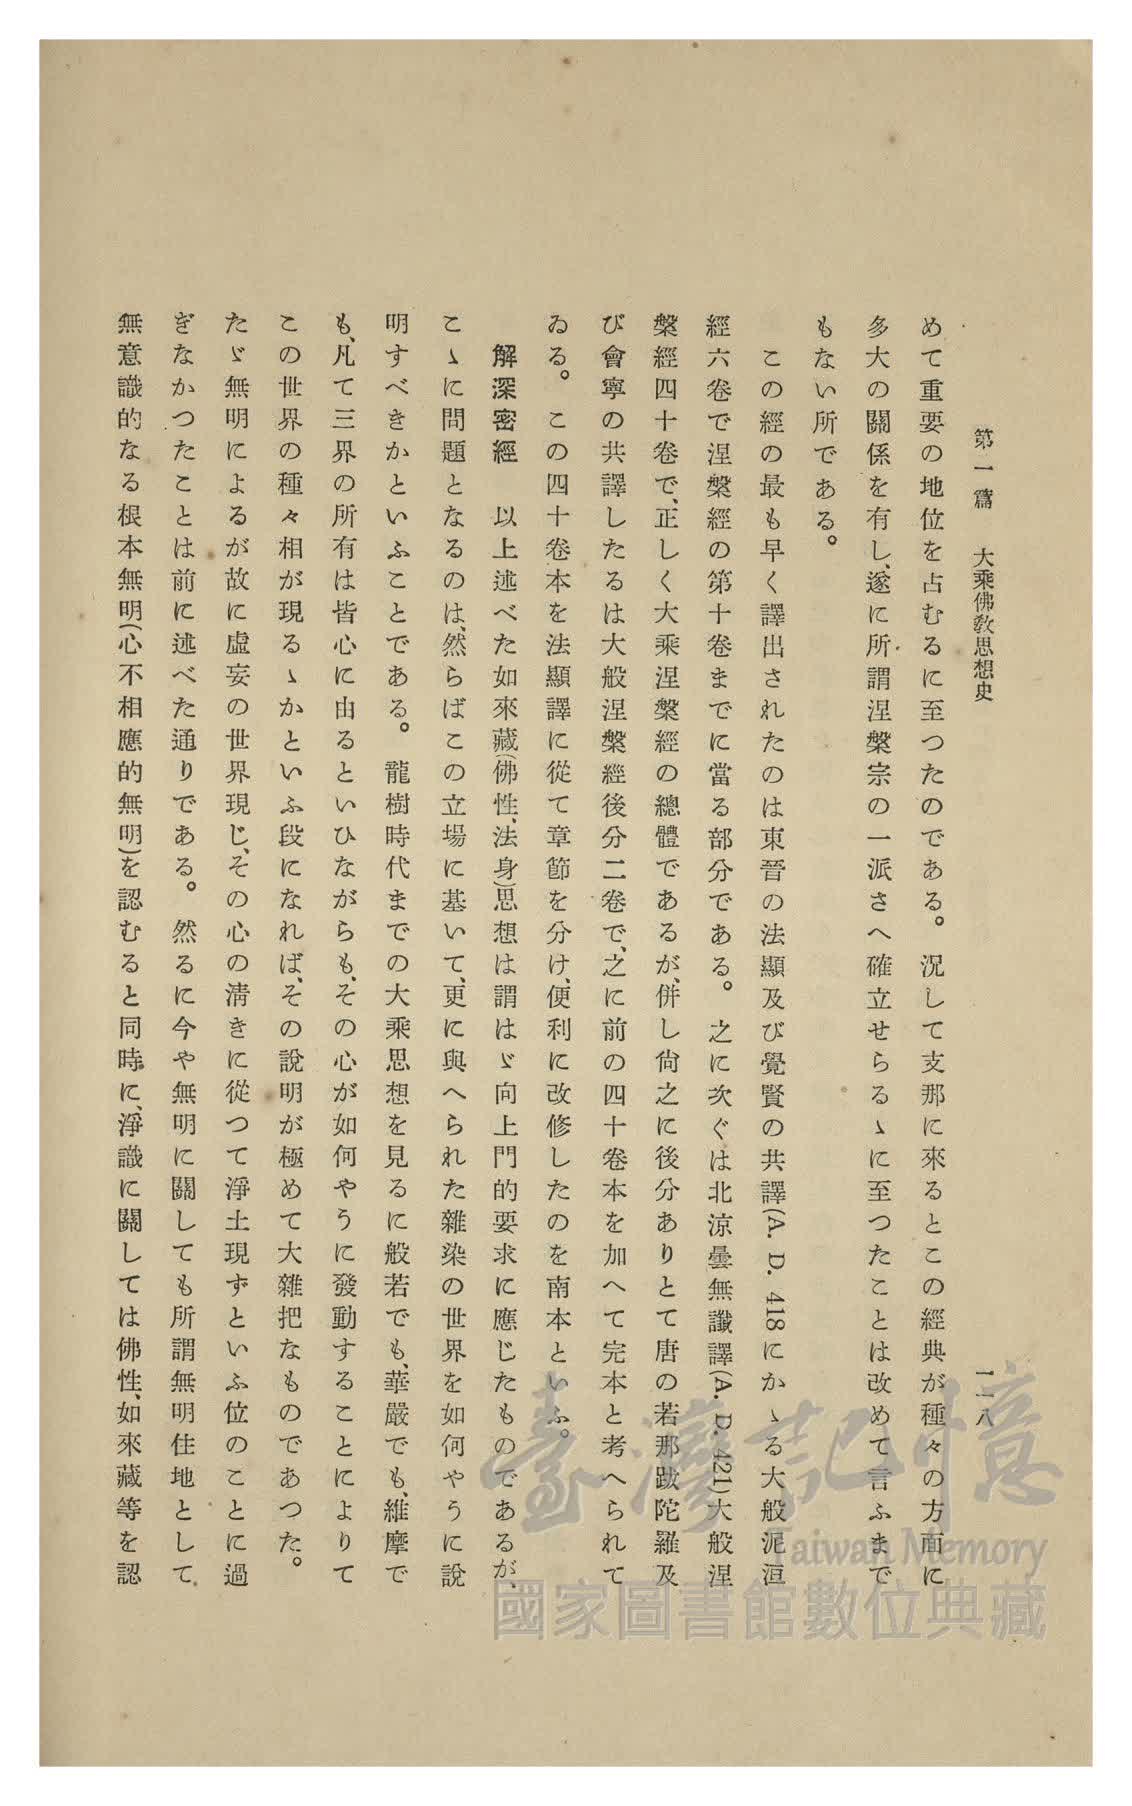 第一篇　大乘佛教思想史　一一八
めて重要の地位を占むるに至つたのである。況して支那に來るとこの經典が種々の方面に
多大の關係を有し、遂に所謂涅槃宗の一派さへ確立せらるゝに至つたことは改めて言ふまで
もない所である。
この經の最も早く譯出されたのは東晉の法顯及び覺賢の共譯(A. D. 418にかゝる大般泥洹
經六卷で涅槃經の第十卷までに當る部分である。之に次ぐは北涼曇無讖譯(A. D. 421)大般涅
槃經四十卷で、正しく大乘涅槃經の總體であるが、併し尙之に後分ありとて唐の若那跋陀羅及
び會寧の共譯したるは大般涅槃經後分二卷で、之に前の四十卷本を加へて完本と考へられて
ゐる。この四十卷本を法顯譯に從て章節を分け、便利に改修したのを南本といふ。
解深密經　以上述べた如來藏(佛性、法身)思想は謂はゞ向上門的要求に應じたものであるが、
こゝに問題となるのは、然らばこの立場に基いて、更に與へられた雜染の世界を如何やうに說
明すべきかといふことである。龍樹時代までの大乘思想を見るに般若でも、華嚴でも、維摩で
も、凡て三界の所有は皆心に由るといひながらも、その心が如何やうに發動することによりて
この世界の種々相が現るゝかといふ段になれば、その說明が極めて大雜把なものであつた。
たゞ無明によるが故に虛妄の世界現じ、その心の淸きに從つて淨土現ずといふ位のことに過
ぎなかつたことは前に述べた通りである。然るに今や無明に關しても所謂無明住地として
無意識的なる根本無明(心不相應的無明)を認むると同時に、淨識に關しては佛性、如來藏等を認
臺灣記憶
Taiwan Memory
國家圖書館數位典藏